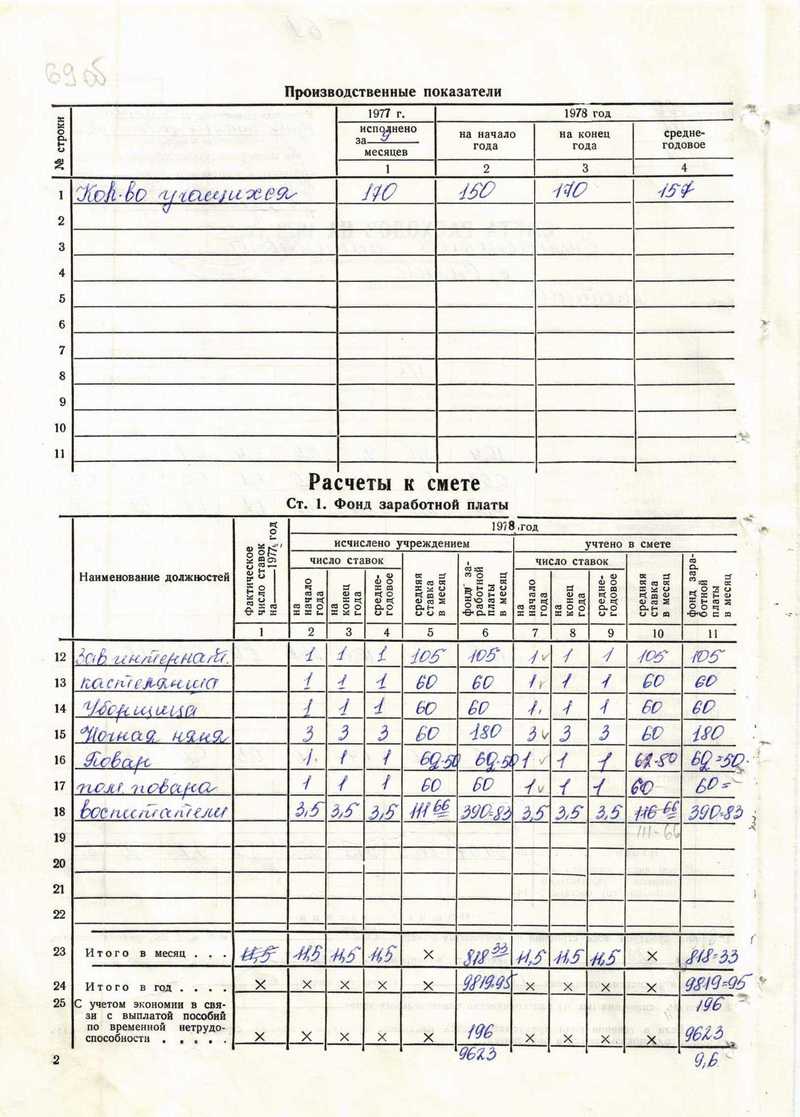 69 об
Производственные показатели
№ строки
1977 г.
1978 год
исполнено за 9 месяцев
на начало года
на конец года
средне-годовое
1 2 3 4
1 Кол-во учащихся 170 150 170 157
2
3
4
5
6
7
8
9
10
11
Расчеты к смете
Ст. 1. Фонд заработной платы
Наименование должностей
Фактическое число ставок на 1977 год
1978 год
исчислено учреждением
учтено в смете
число ставок
средняя ставка в месяц
фонд заработной платы в месяц
число ставок
средняя ставка в месяц
фонд заработной платы в месяц
на начало года
на конец года
средне-годовое
на начало года
на конец года
средне-годовое
1 2 3 4 5 6 7 8 9 10 11
12 Зав интернат. 1 1 1 105 105 1 1 1 105 105
13 кастелянша 1 1 1 60 60 1 1 1 60 60
14 Уборщица 1 1 1 60 60 1 1 1 60 60
15 Ночная няня 3 3 3 60 180 3 3 3 60 180
16 Повар 1 1 1 62-50 62-50 1 1 1 62-50 62=50
17 пом. повара 1 1 1 60 60 1 1 1 60 60=
18 воспитатели 3,5 3,5 3,5 111 66 390=83 3,5 3,5 3,5 116-66 390=83
19 111-66
20
21
22
23 Итого в месяц . . . 11,5 11,5 11,5 11,5 × 818 33 11,5 11,5 11,5 × 818=33
24 Итого в год . . . . × × × × × 9819-95 × × × × 9819=95
25 С учетом экономии в свя-
зи с выплатой пособий
по временной нетрудо-
способности . . . . . × × × × × 196 × × × × 196
9623
9623
9,6
2